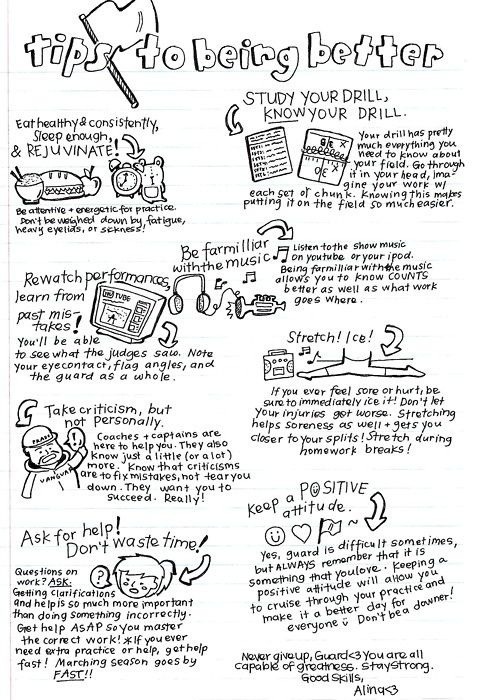 tips to being better
Eat healthy & consistently,
Sleep enough,
& REJUVINATE!
Be attentive + energetic for practice.
Don't be weighed down by fatigue,
heavy eyelids, or sickness!
STUDY YOUR DRILL,
KNOW YOUR DRILL.
Your drill has pretty
much everything you
need to know about
your field. Go through
it in your head, ima-
gine your work w/
each set of chunk. Knowing this makes
putting it on the field so much easier.
Be farmilliar
with the music
Listen to the show music
on youtube or your ipod.
Being farmilliar with the music
allows you to know COUNTS
better as well as what work
goes where.
Rewatch performances,
learn from
past mis-
takes!
YOU TUBE
You'll be able
to see what the judges saw. Note
your eye contact, flag angles, and
the guard as a whole.
Stretch! Ice!
If you ever feel sore or hurt, be
sure to immediately ice it! Don't let
your injuries get worse. Stretching
helps soreness as well + gets you
closer to your splits! Stretch during
homework breaks!
Take criticism, but
not personally.
VANGUARD
Coaches + captains are
here to help you. They also
know just a little (or a lot)
more. Know that criticisms
are to fix mistakes, not tear you
down. They want you to
succeed. Really!
Keep a POSITIVE
attitude.
Yes, guard is difficult sometimes,
but ALWAYS remember that it is
something that you love. Keeping a
positive attitude will allow you
to cruise through your practice and
make it a better day for
everyone Don't be a downer!
Ask for help!
Don't waste time!
Questions on
work? ASK.
?
!
Getting clarifications
and help is so much more important
than doing something incorrectly.
Get help ASAP so you master
the correct work! *If you ever
need extra practice or help, get help
fast! Marching season goes by
FAST!!
Never give up, Guard<3 You are all
capable of greatness. Stay strong.
Good Skills,
Alina<3